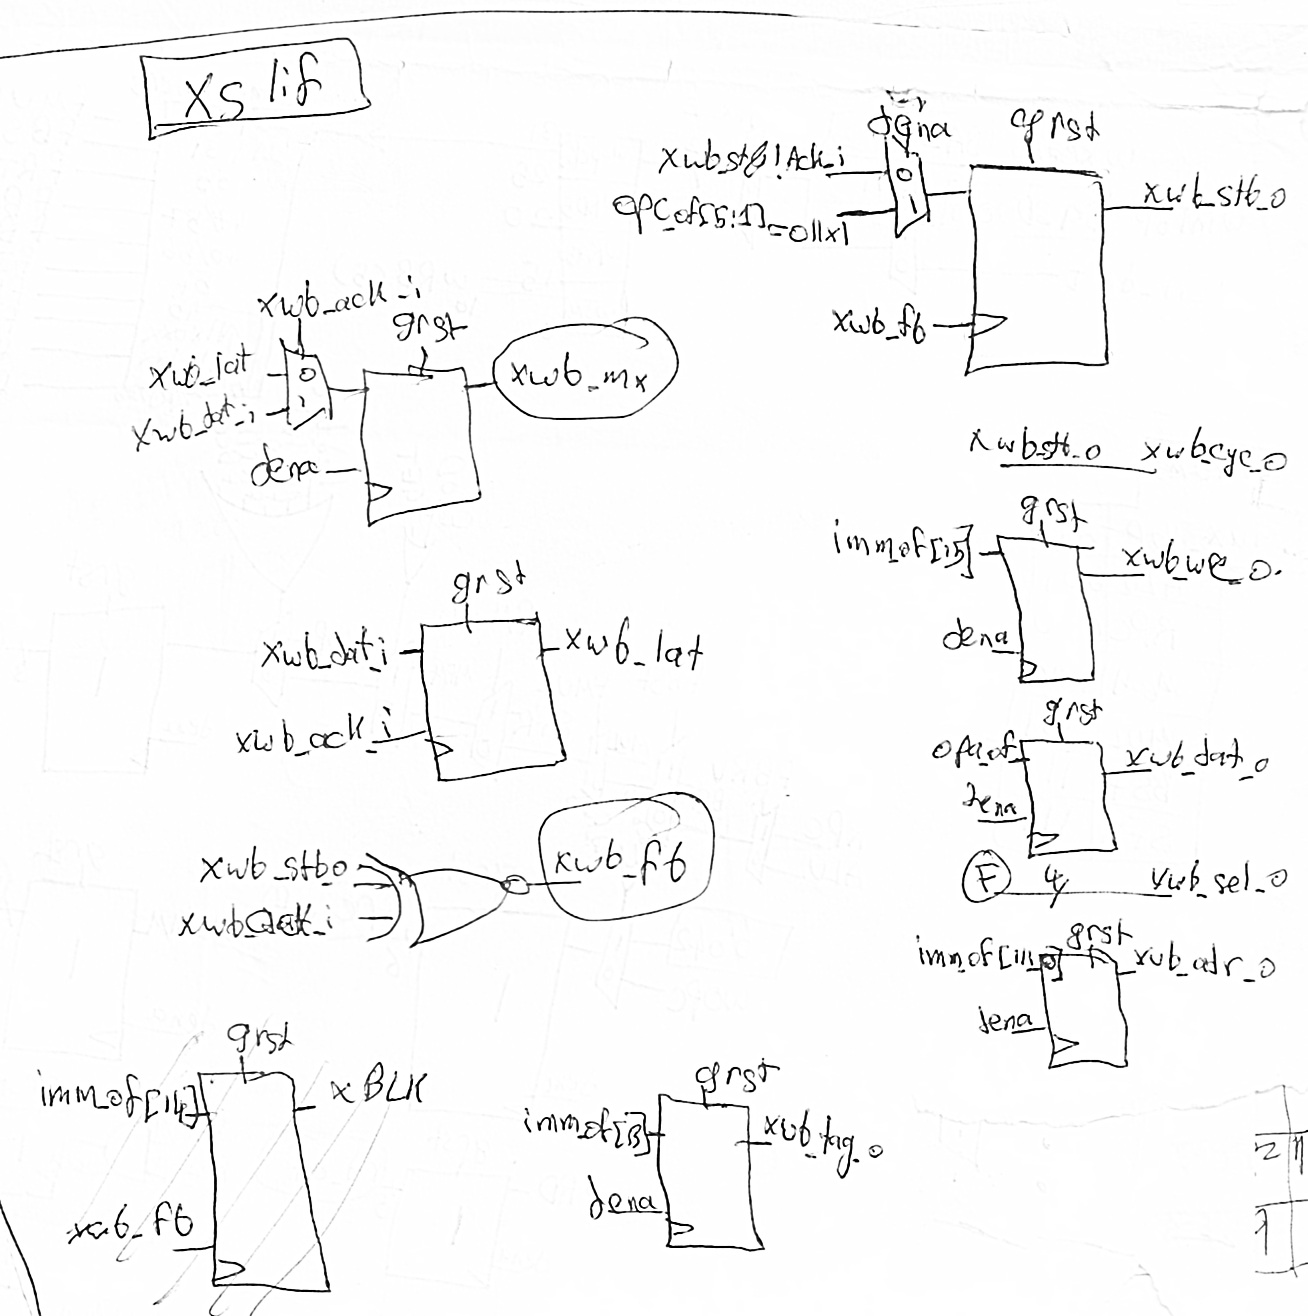 xs lif
dena
grst
xwb_stb!Ack_i
0
1
opc_of[5:1]=011x1
xwb_stb_o
xwb_fb
xwb_ack_i
grst
xwb_lat
0
1
xwb_dat_i
xwb_mx
dena
xwb_stb_o xwb_cyc_o
grst
imm_of[15]
xwb_we_o
dena
grst
xwb_dat_i
xwb_lat
xwb_ack_i
grst
opa_of
xwb_dat_o
dena
xwb_stb_o
xwb_ack_i
xwb_fb
F 4 xwb_sel_o
grst
imm_of[11:0]
xwb_adr_o
dena
grst
imm_of[14]
xBLK
xwb_fb
grst
imm_of[13]
xwb_tag_o
dena